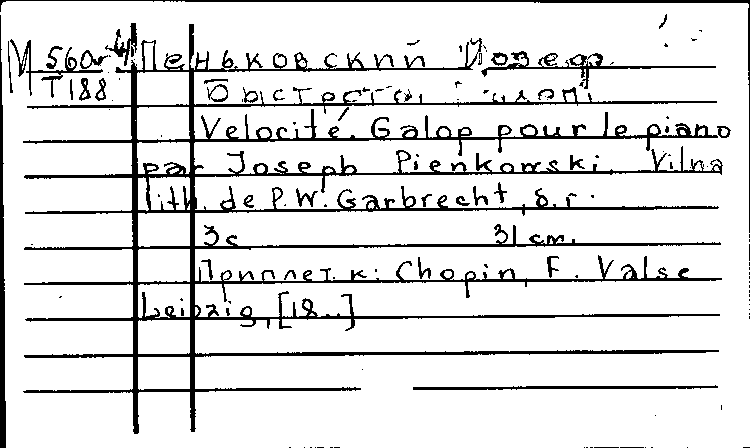 М 560г-4 Пеньковский Йозеф.
Т188 Быстрота.
Velocité. Galop pour le piano
par Joseph Pieńkowski. Vilna
lith. de P. W. Garbrecht, б. г.
3 с 31 cm.
Приплет. к: Chopin, F. Valse
Leipzig, [18..]